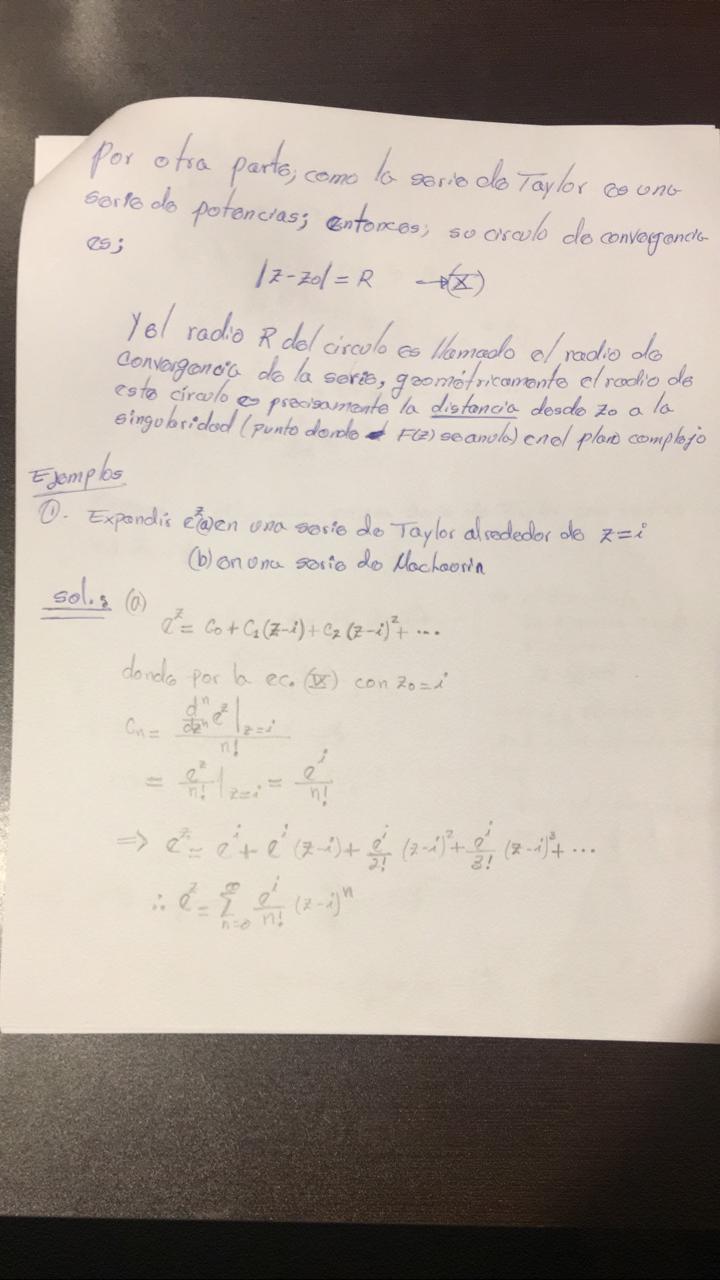 Por otra parte, como la serie de Taylor es una
serie de potencias; entonces; su circulo de convergencia
es;
|z-z0| = R → (X)
Y el radio R del circulo es llamado el radio de
convergencia de la serie, geométricamente el radio de
este círculo es precisamente la distancia desde z0 a la
singularidad (punto donde F(z) se anula) en el plano complejo
Ejemplos
①. Expandir e^z (a) en una serie de Taylor alrededor de z=i
(b) en una serie de Maclaurin
sol.: (a)
e^z = C0 + C1(z-i) + C2(z-i)^2 + ...
donde por la ec. (IX) con z0 = i
Cn = d^n/dz^n e^z |z=i / n!
= e^z/n! |z=i = e^i/n!
=> e^z = e^i + e^i (z-i) + e^i/2! (z-i)^2 + e^i/3! (z-i)^3 + ...
∴ e^z = ∑ n=0 ∞ e^i/n! (z-i)^n